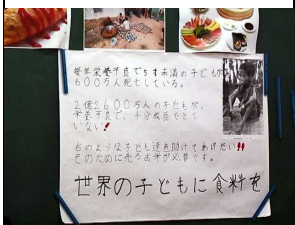 毎年栄養不良で5才未満の子どもが
600万人死亡している。
2億2600万人の子どもが、
栄養不良で、十分成長できて
いない!
右のような子ども達を助けてあげたい!!
そのために売るお米が必要です。
世界の子どもに食料を